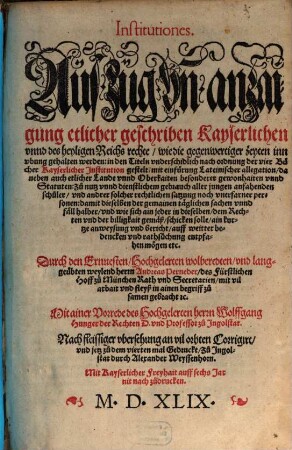 Institutiones.
Außzug vñ anzai
gung etlicher geschriben Kayserlichen
vnnd des heyligen Reichs rechte / wie die gegenwertiger zeyten inn
vbung gehalten werden: in den Titeln vnderschidlich nach ordnung der vier Bü
cher Kayserlicher Institution gestelt / mit einfürung Lateinischer allegation / da
neben auch etlicher Lande vnnd Oberkaiten besonderer gewonhaiten vnnd
Statuten: zů nutz vnnd dienstlichem gebrauch aller jungen ansahenden
schüler / vnd anderer solcher rechtlichen satzung noch vnerfarner pers
sonen: damit dieselben der gemainen täglichen sachen vnnd
fäll halber / vnd wie sich ain jeder in dieselben / dem Rech-
ten vnd der billigkait gemäß / schicken solle / ain kur-
tze anweysung vnd bericht / auff weitter be-
dencken vnd rathsůchung empfa-
hen mögen etc.
Durch den Ernuesten / Hochgelerten wolberedten / vnd lang-
geübten weylend herrn Andreas Perneder / des Fürstlichen
Hoff zů München Rath vnd Secretarien / mit vil
arbait vnd fleyß in ainen begriff zů
samen gebracht ꝛc.
Mit ainer Vorrede des Hochgelerten herrn Wolffgang
Hunger der Rechten D. vnd Professor zů Ingolstat.
Nach fleissiger vbersehung an vil orhten Corrigirt /
vnd jetz zů dem vierten mal Gedruckt / Zů Ingol-
stat durch Alexander Weyssenhorn.
Mit Kayserlicher Freyhait auff sechs Jar
nit nach zůdrucken.
M. D. XLIX.